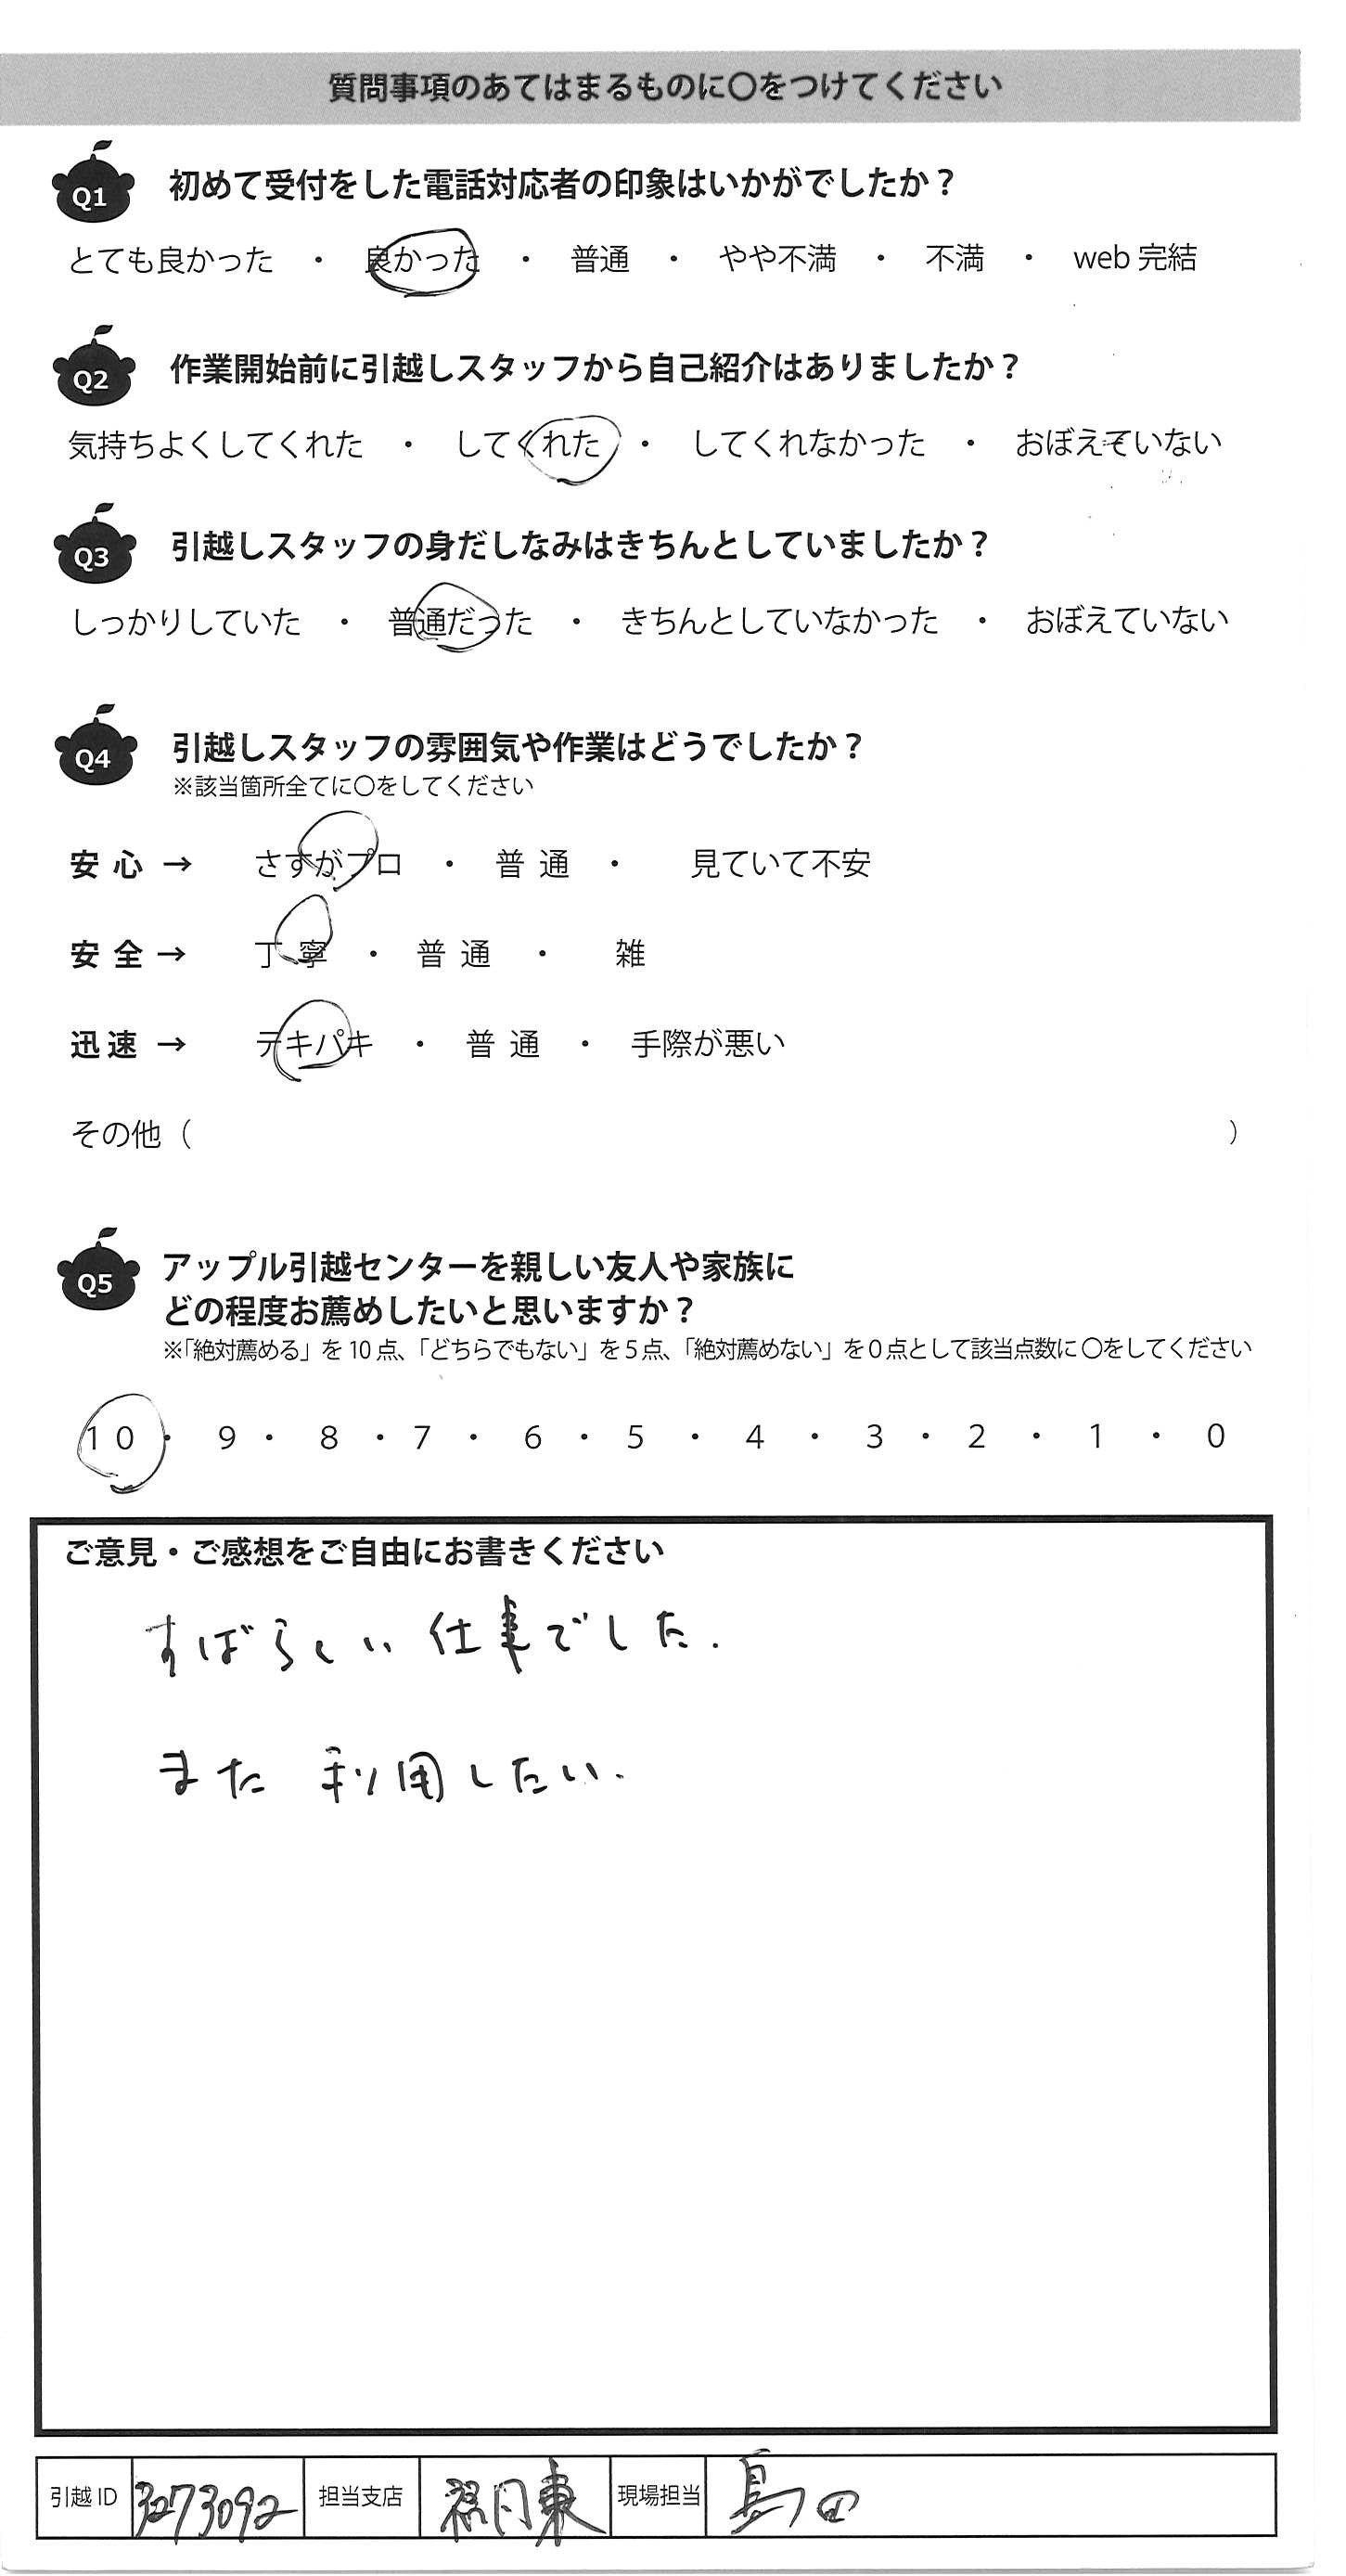 質問事項のあてはまるものに〇をつけてください
Q1 初めて受付をした電話対応者の印象はいかがでしたか？
とても良かった ・ 良かった ・ 普通 ・ やや不満 ・ 不満 ・ web 完結
Q2 作業開始前に引越しスタッフから自己紹介はありましたか？
気持ちよくしてくれた ・ してくれた ・ してくれなかった ・ おぼえていない
Q3 引越しスタッフの身だしなみはきちんとしていましたか？
しっかりしていた ・ 普通だった ・ きちんとしていなかった ・ おぼえていない
Q4 引越しスタッフの雰囲気や作業はどうでしたか？
※該当箇所全てに〇をしてください
安心 → さすがプロ ・ 普通 ・ 見ていて不安
安全 → 丁寧 ・ 普通 ・ 雑
迅速 → テキパキ ・ 普通 ・ 手際が悪い
その他（ ）
Q5 アップル引越センターを親しい友人や家族に
どの程度お薦めしたいと思いますか？
※「絶対薦める」を 10 点、「どちらでもない」を 5 点、「絶対薦めない」を 0 点として該当点数に 〇をしてください
10 ・ 9 ・ 8 ・ 7 ・ 6 ・ 5 ・ 4 ・ 3 ・ 2 ・ 1 ・ 0
ご意見・ご感想をご自由にお書きください
すばらしい仕事でした.
また 利用したい.
引越 ID 3273092 担当支店 現場担当 島田